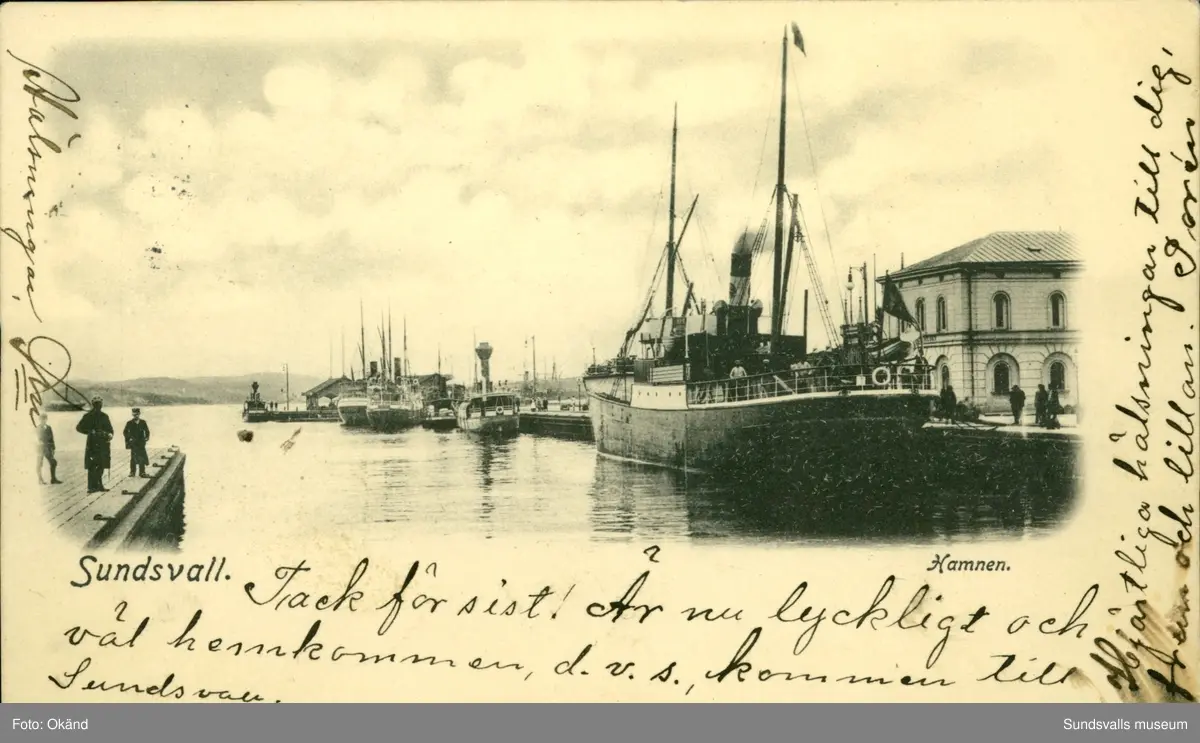 Sundsvall.
Hamnen.
Tack för sist! Är nu lyckligt och
väl hemkommen, d.v.s., kommen till
Sundsvall.
Hjärtliga hälsningar till dig,
och lillan.
Hälsningar,
Foto: Okänd
Sundsvalls museum